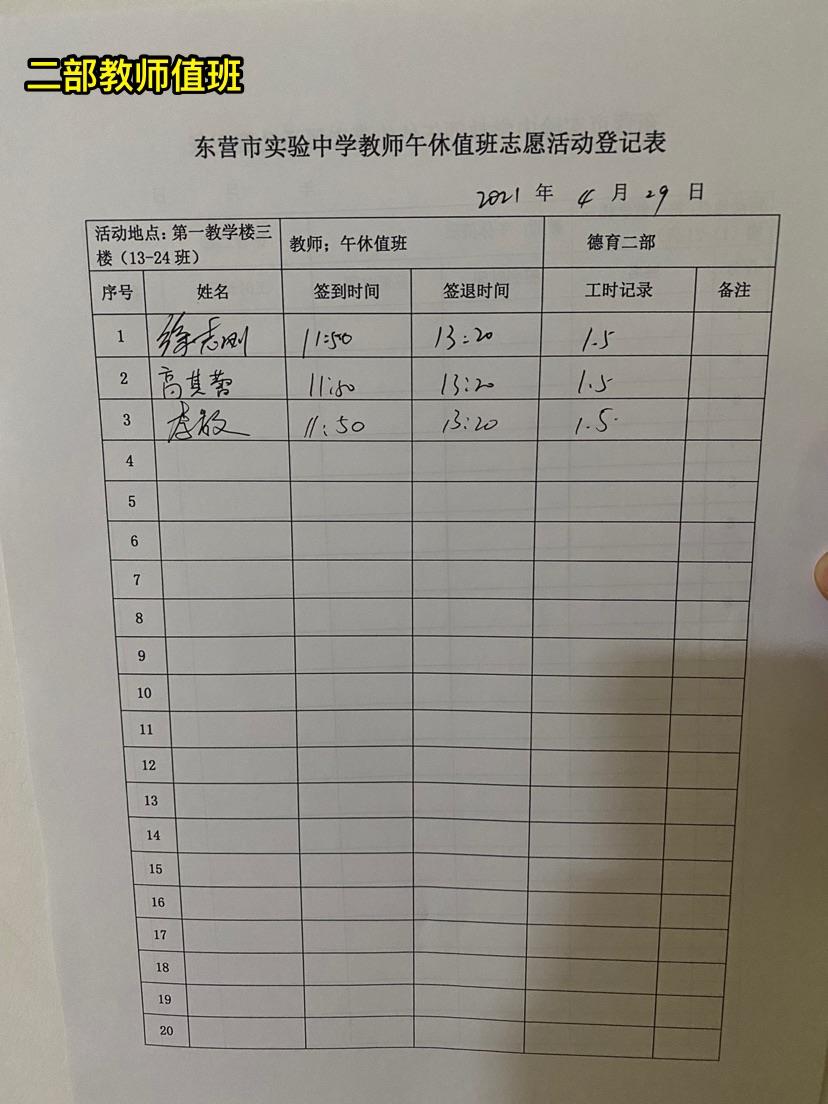 二部教师值班
东营市实验中学教师午休值班志愿活动登记表
2021 年 4 月 29 日
活动地点：第一教学楼三楼（13-24 班） 教师；午休值班 德育二部
序号 姓名 签到时间 签退时间 工时记录 备注
1 徐志刚 11:50 13:20 1.5
2 高其 11:50 13:20 1.5
3 李敏 11:50 13:20 1.5
4
5
6
7
8
9
10
11
12
13
14
15
16
17
18
19
20